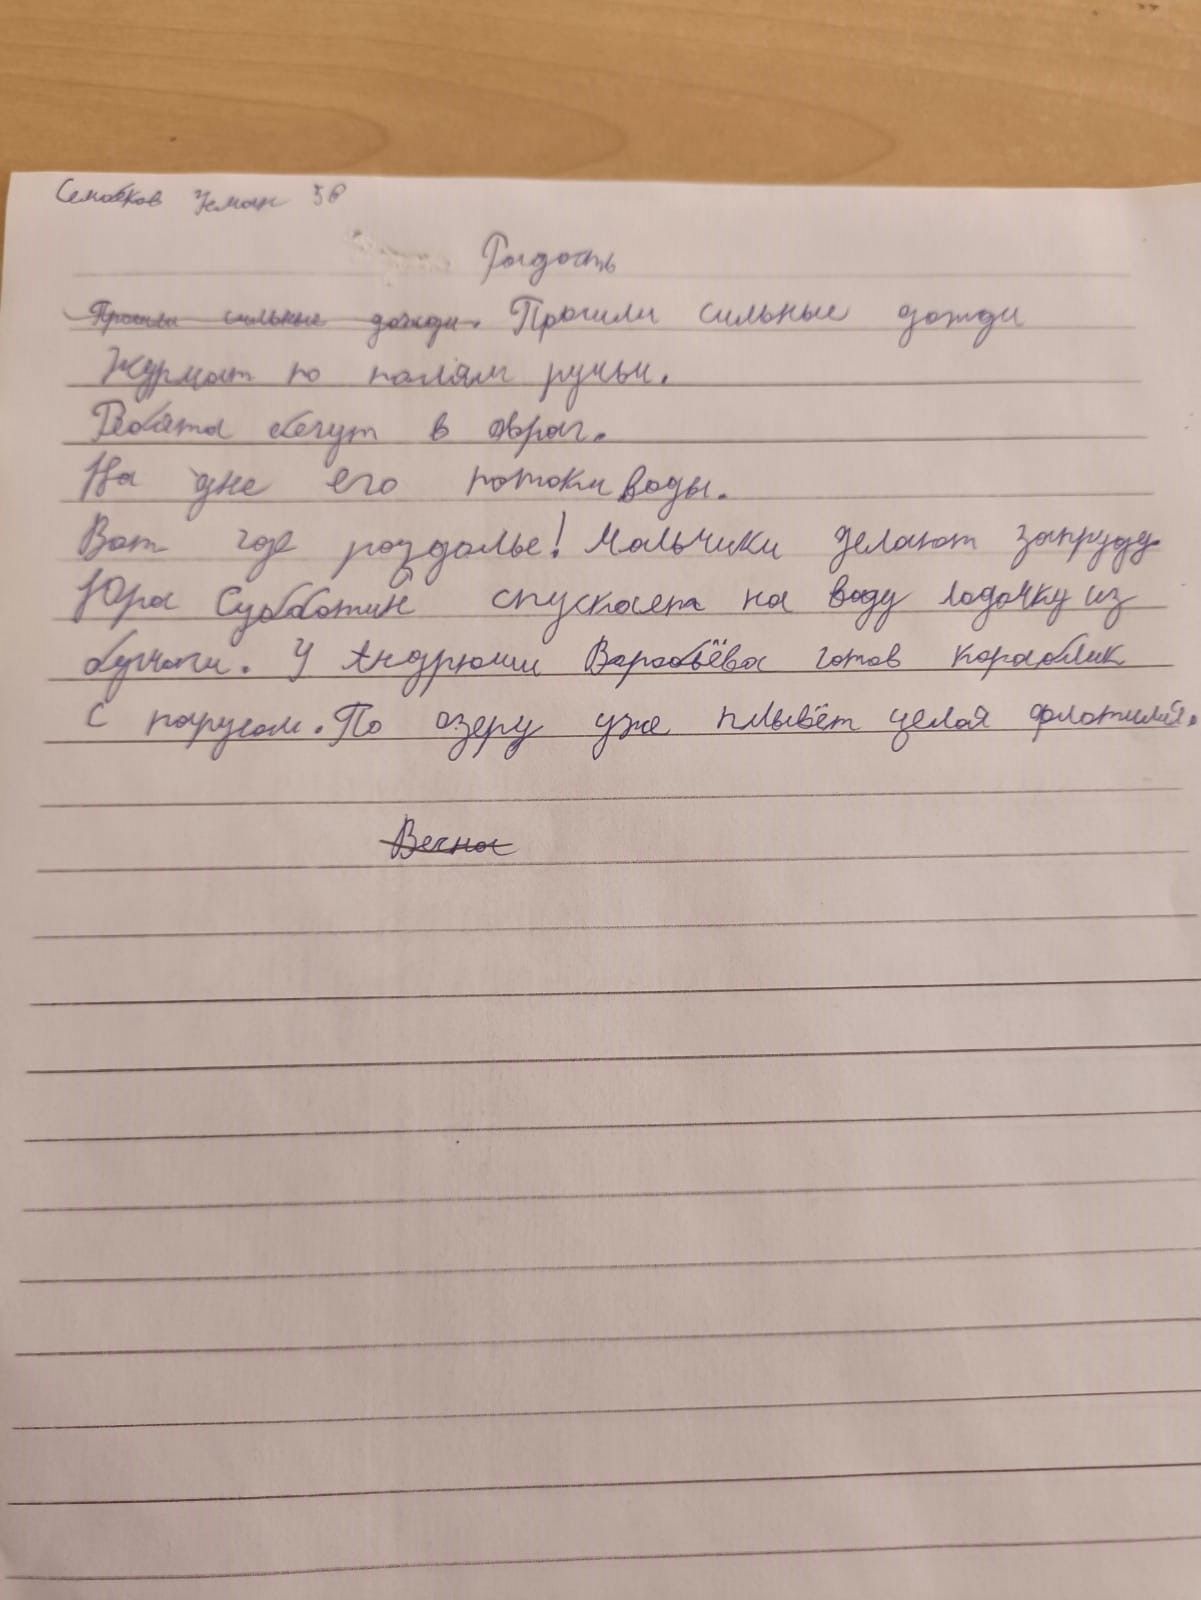 Усман 5в
Радость
Прошли сильные дожди. Прошли сильные дожди
Журмат по палям ручьи.
Ребята бегут в овраг.
На дне его потоки воды.
Вот где роздалье! Мальчики делают запруду.
Юра Субботин спускаета на воду лодочку из
бумаги. У Андрюши Варабьёва готов кораблик
с парусом. По озеру уже плывёт целая флотилия.
Весна